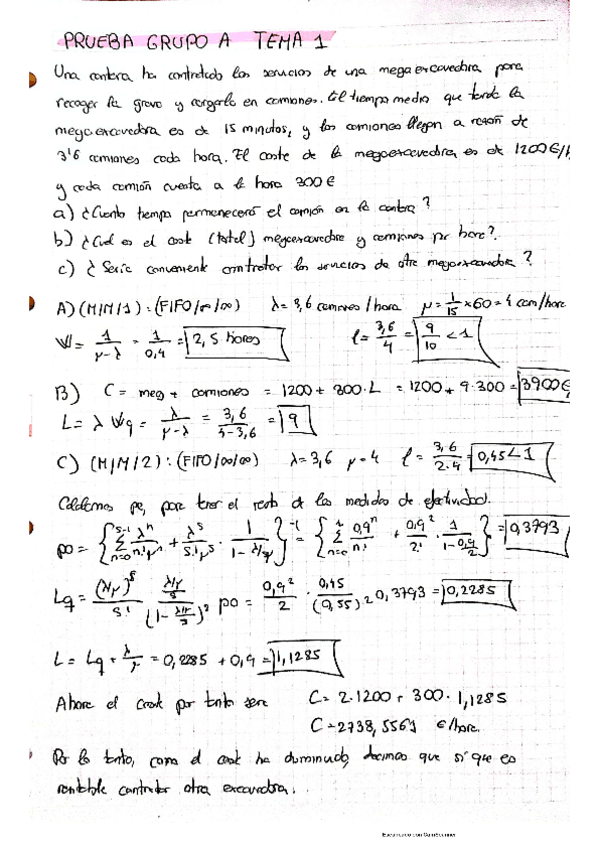 PRUEBA GRUPO A TEMA 1
Una cantera ha contratado los servicios de una megaexcavadora para
recoger la grava y cargarla en camiones. El tiempo medio que tarda la
megaexcavadora es de 15 minutos, y los camiones llegan a razón de
3'6 camiones cada hora. El coste de la megaexcavadora es de 1200€/h
y cada camión cuesta a la hora 300€
a) ¿Cuánto tiempo permanecerá el camión en la cantera?
b) ¿Cuál es el coste (total) megaexcavadora y camiones por hora?
c) ¿Sería conveniente contratar los servicios de otra megaexcavadora?
A) (M/M/1):(FIFO/∞/∞) λ=3,6 camiones/hora μ=1/15×60=4 cam/hora
W = 1/(μ-λ) = 1/0,4 = 2,5 horas ρ = 3,6/4 = 9/10 < 1
B) C = meg + camiones = 1200 + 300·L = 1200 + 9·300 = 3900€
L = λ Wq = λ/(μ-λ) = 3,6/(4-3,6) = 9
C) (M/M/2):(FIFO/∞/∞) λ=3,6 μ=4 ρ = 3,6/(2·4) = 0,45<1
Calculemos po, para tener el resto de las medidas de efectividad.
po = {Σ(n=0, s-1) λ^n/(n!μ^n) + λ^s/(s!μ^s) · 1/(1-λ/sμ)}^-1 = {Σ(n=0, 1) 0,9^n/n! + 0,9²/2! · 1/(1-0,9/2)} = 0,3793
Lq = (λ/μ)^s/s! · (λ/μ/s)/(1-(λ/μ)/s)² po = 0,9²/2 · 0,45/(0,55)² 0,3793 = 0,2285
L = Lq + λ/μ = 0,2285 + 0,9 = 1,1285
Ahora el coste por tanto será C = 2·1200 + 300·1,1285
C = 2738,5561 €/hora.
Por lo tanto, como el coste ha disminuido, decimos que sí que es
rentable contratar otra excavadora.
Escaneado con CamScanner